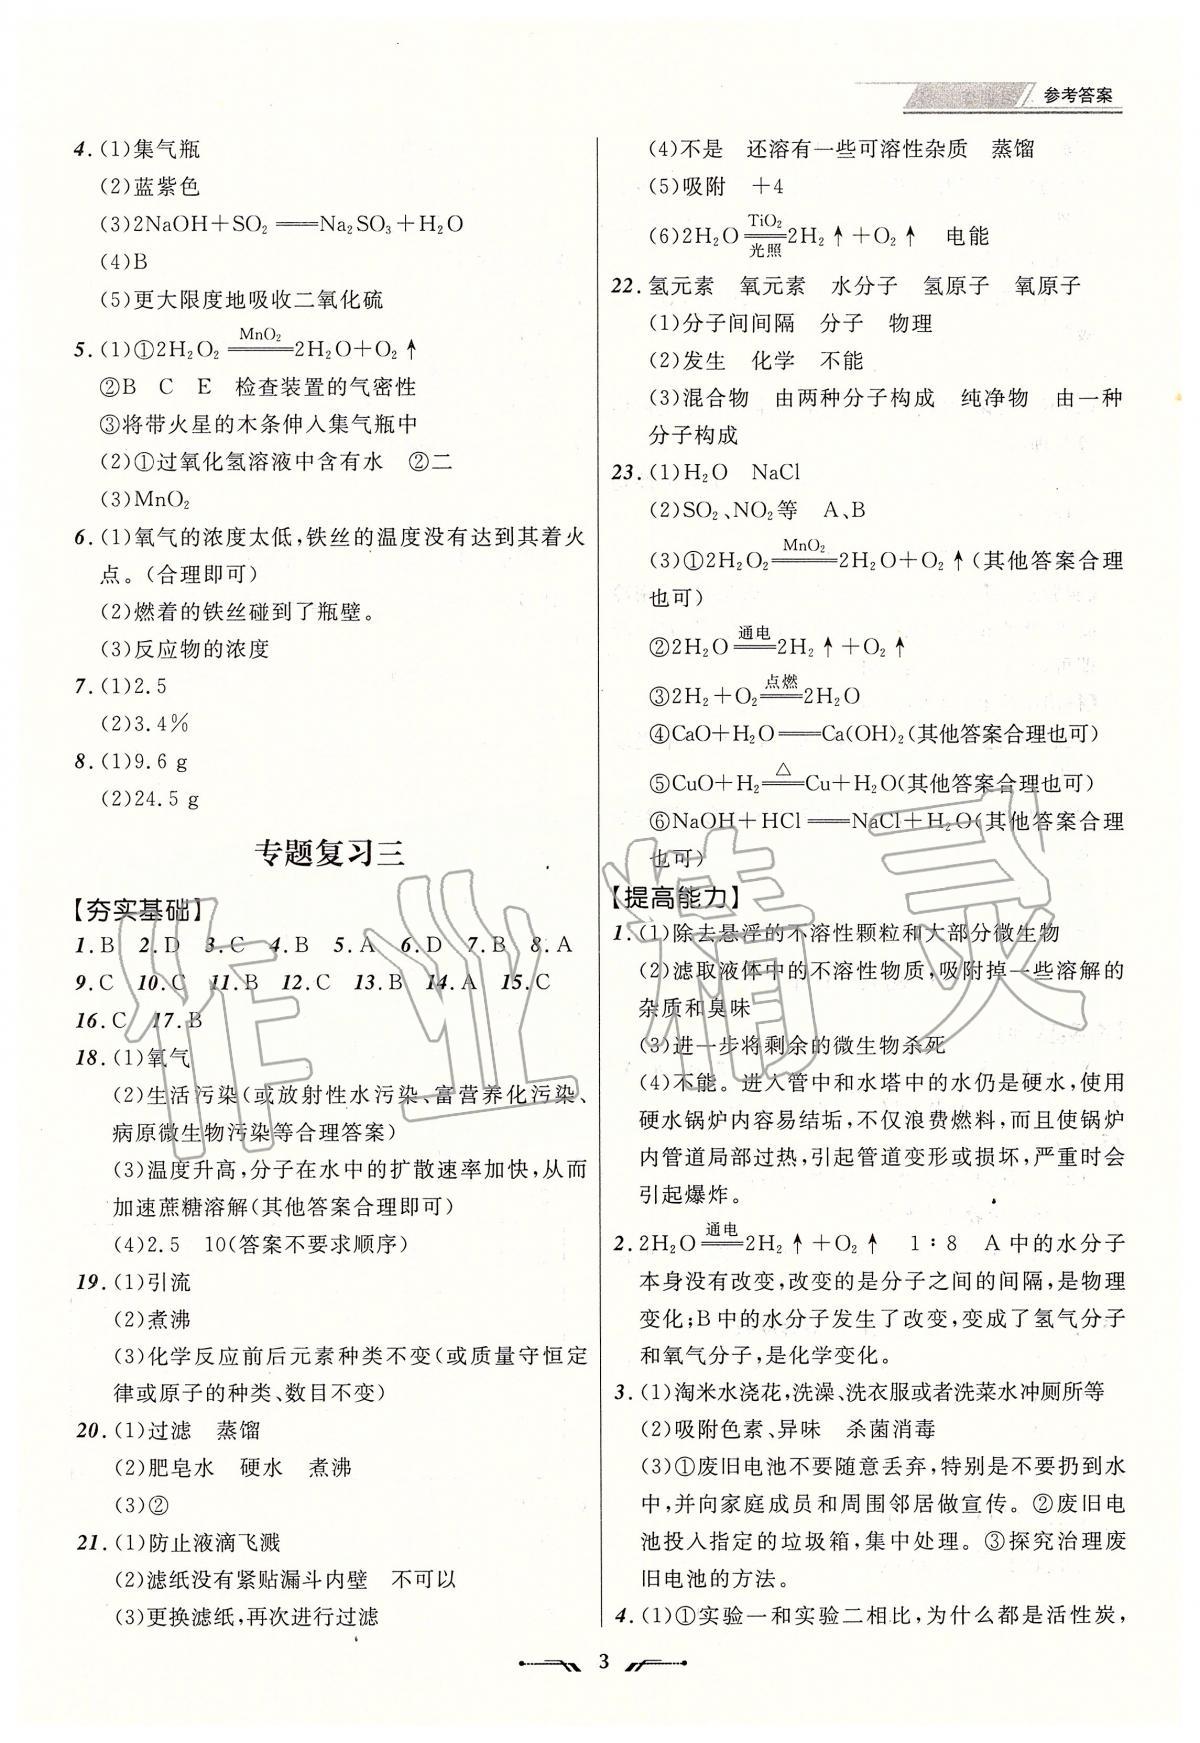 参考答案
4.(1)集气瓶
(2)蓝紫色
(3)2NaOH+SO₂══Na₂SO₃+H₂O
(4)B
(5)更大限度地吸收二氧化硫
MnO₂
5.(1)①2H₂O₂══2H₂O+O₂↑
②B C E 检查装置的气密性
③将带火星的木条伸入集气瓶中
(2)①过氧化氢溶液中含有水 ②二
(3)MnO₂
6.(1)氧气的浓度太低,铁丝的温度没有达到其着火
点。(合理即可)
(2)燃着的铁丝碰到了瓶壁。
(3)反应物的浓度
7.(1)2.5
(2)3.4%
8.(1)9.6 g
(2)24.5 g
专题复习三
【夯实基础】
1.B 2.D 3.C 4.B 5.A 6.D 7.B 8.A
9.C 10.C 11.B 12.C 13.B 14.A 15.C
16.C 17.B
18.(1)氧气
(2)生活污染(或放射性水污染、富营养化污染、
病原微生物污染等合理答案)
(3)温度升高,分子在水中的扩散速率加快,从而
加速蔗糖溶解(其他答案合理即可)
(4)2.5 10(答案不要求顺序)
19.(1)引流
(2)煮沸
(3)化学反应前后元素种类不变(或质量守恒定
律或原子的种类、数目不变)
20.(1)过滤 蒸馏
(2)肥皂水 硬水 煮沸
(3)②
21.(1)防止液滴飞溅
(2)滤纸没有紧贴漏斗内壁 不可以
(3)更换滤纸,再次进行过滤
(4)不是 还溶有一些可溶性杂质 蒸馏
(5)吸附 +4
TiO₂
(6)2H₂O══2H₂↑+O₂↑ 电能
光照
22.氢元素 氧元素 水分子 氢原子 氧原子
(1)分子间间隔 分子 物理
(2)发生 化学 不能
(3)混合物 由两种分子构成 纯净物 由一种
分子构成
23.(1)H₂O NaCl
(2)SO₂、NO₂等 A、B
MnO₂
(3)①2H₂O₂══2H₂O+O₂↑(其他答案合理
也可)
通电
②2H₂O══2H₂↑+O₂↑
点燃
③2H₂+O₂══2H₂O
④CaO+H₂O══Ca(OH)₂(其他答案合理也可)
△
⑤CuO+H₂══Cu+H₂O(其他答案合理也可)
⑥NaOH+HCl══NaCl+H₂O(其他答案合理
也可)
【提高能力】
1.(1)除去悬浮的不溶性颗粒和大部分微生物
(2)滤取液体中的不溶性物质,吸附掉一些溶解的
杂质和臭味
(3)进一步将剩余的微生物杀死
(4)不能。进入管中和水塔中的水仍是硬水,使用
硬水锅炉内容易结垢,不仅浪费燃料,而且使锅炉
内管道局部过热,引起管道变形或损坏,严重时会
引起爆炸。
通电
2.2H₂O══2H₂↑+O₂↑ 1∶8 A中的水分子
本身没有改变,改变的是分子之间的间隔,是物理
变化;B中的水分子发生了改变,变成了氢气分子
和氧气分子,是化学变化。
3.(1)淘米水浇花,洗澡、洗衣服或者洗菜水冲厕所等
(2)吸附色素、异味 杀菌消毒
(3)①废旧电池不要随意丢弃,特别是不要扔到水
中,并向家庭成员和周围邻居做宣传。②废旧电
池投入指定的垃圾箱,集中处理。③探究治理废
旧电池的方法。
4.(1)①实验一和实验二相比,为什么都是活性炭,
3
作业精灵